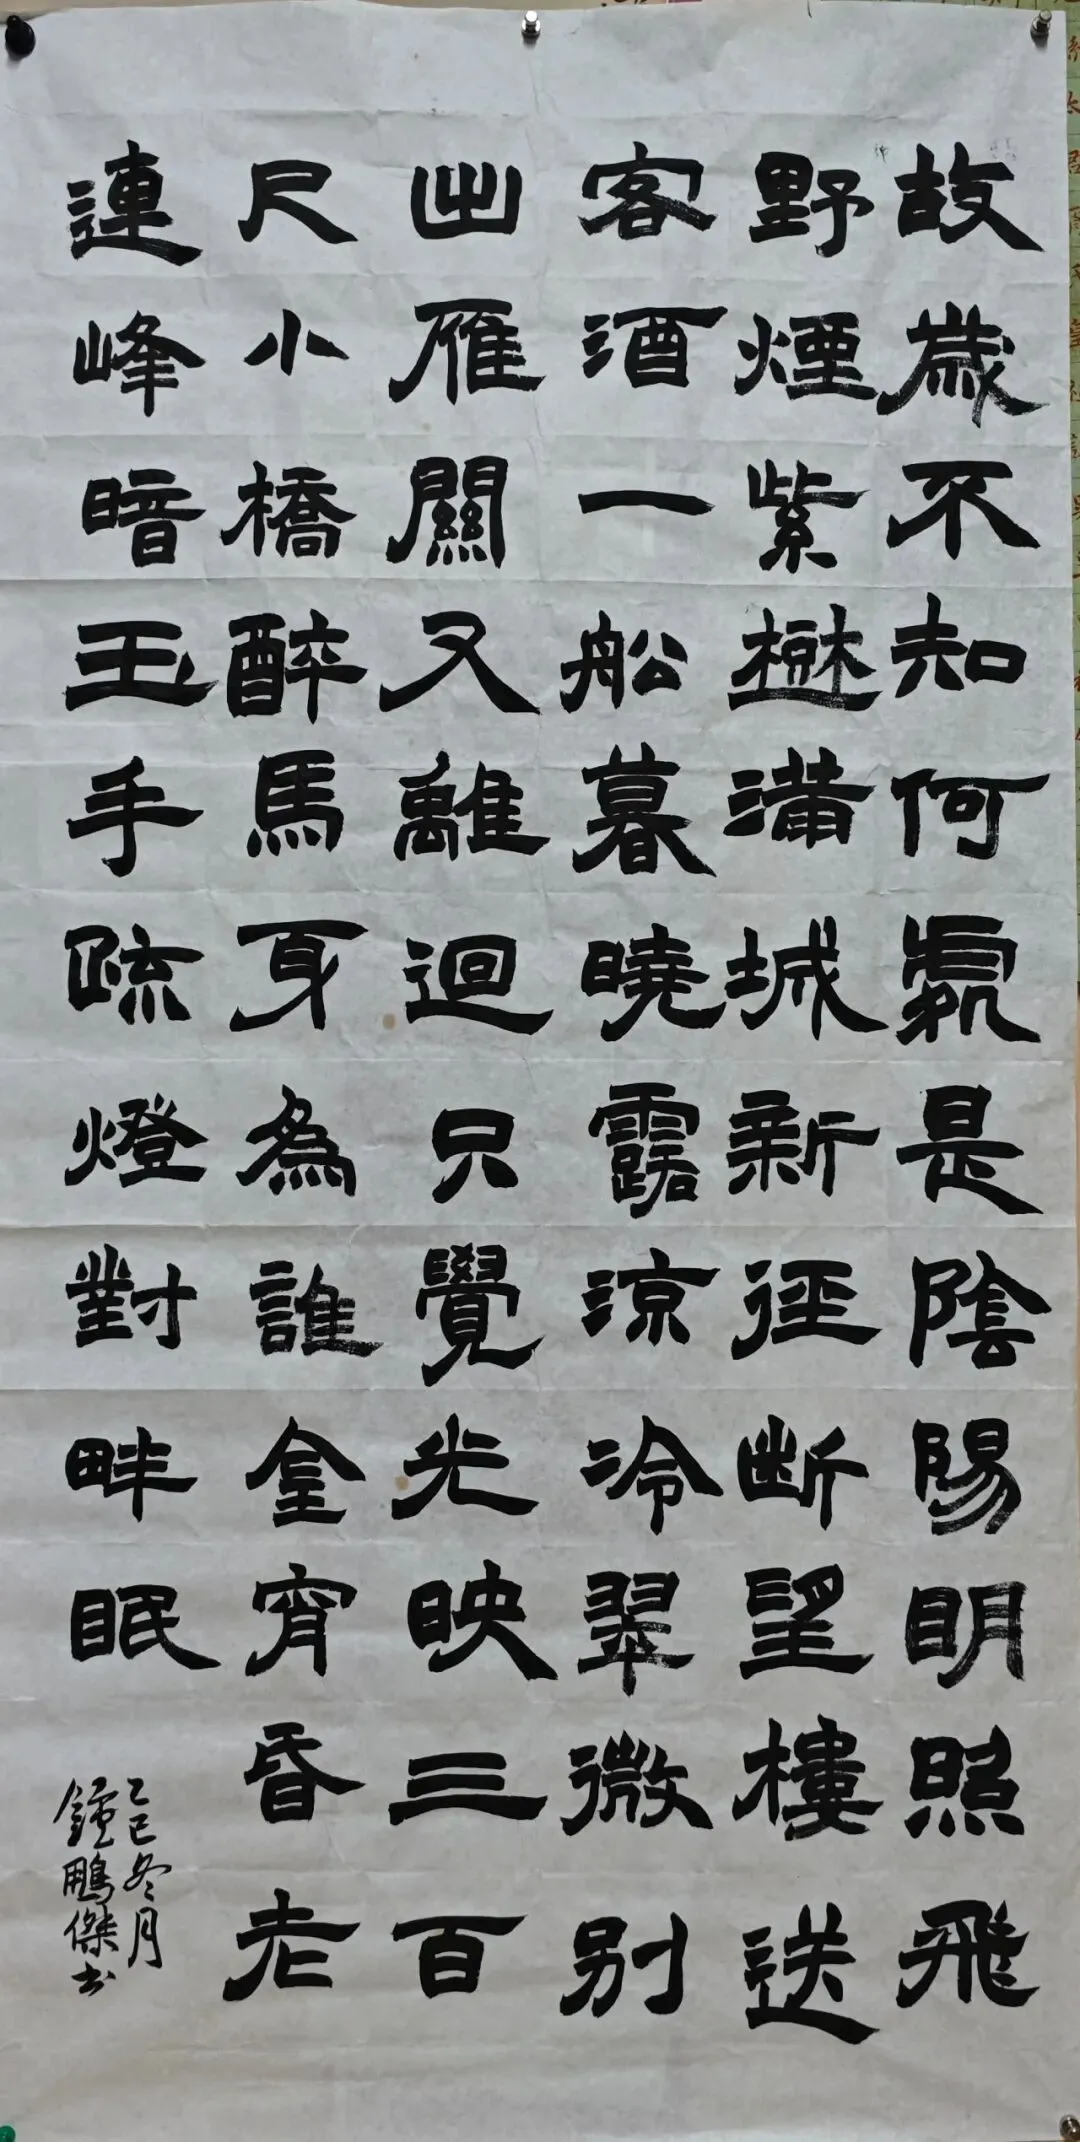 故歲不知何處是陰陽明照飛
野煙紫滿城新徑断望樓送
客酒一船暮曉露涼冷翠微别
出雁關又離迴只覺光映三百
尺小橋醉馬身為誰金宵昏老
連峰暗玉手疏燈對畔眠
乙巳冬月
鐘鵬傑书